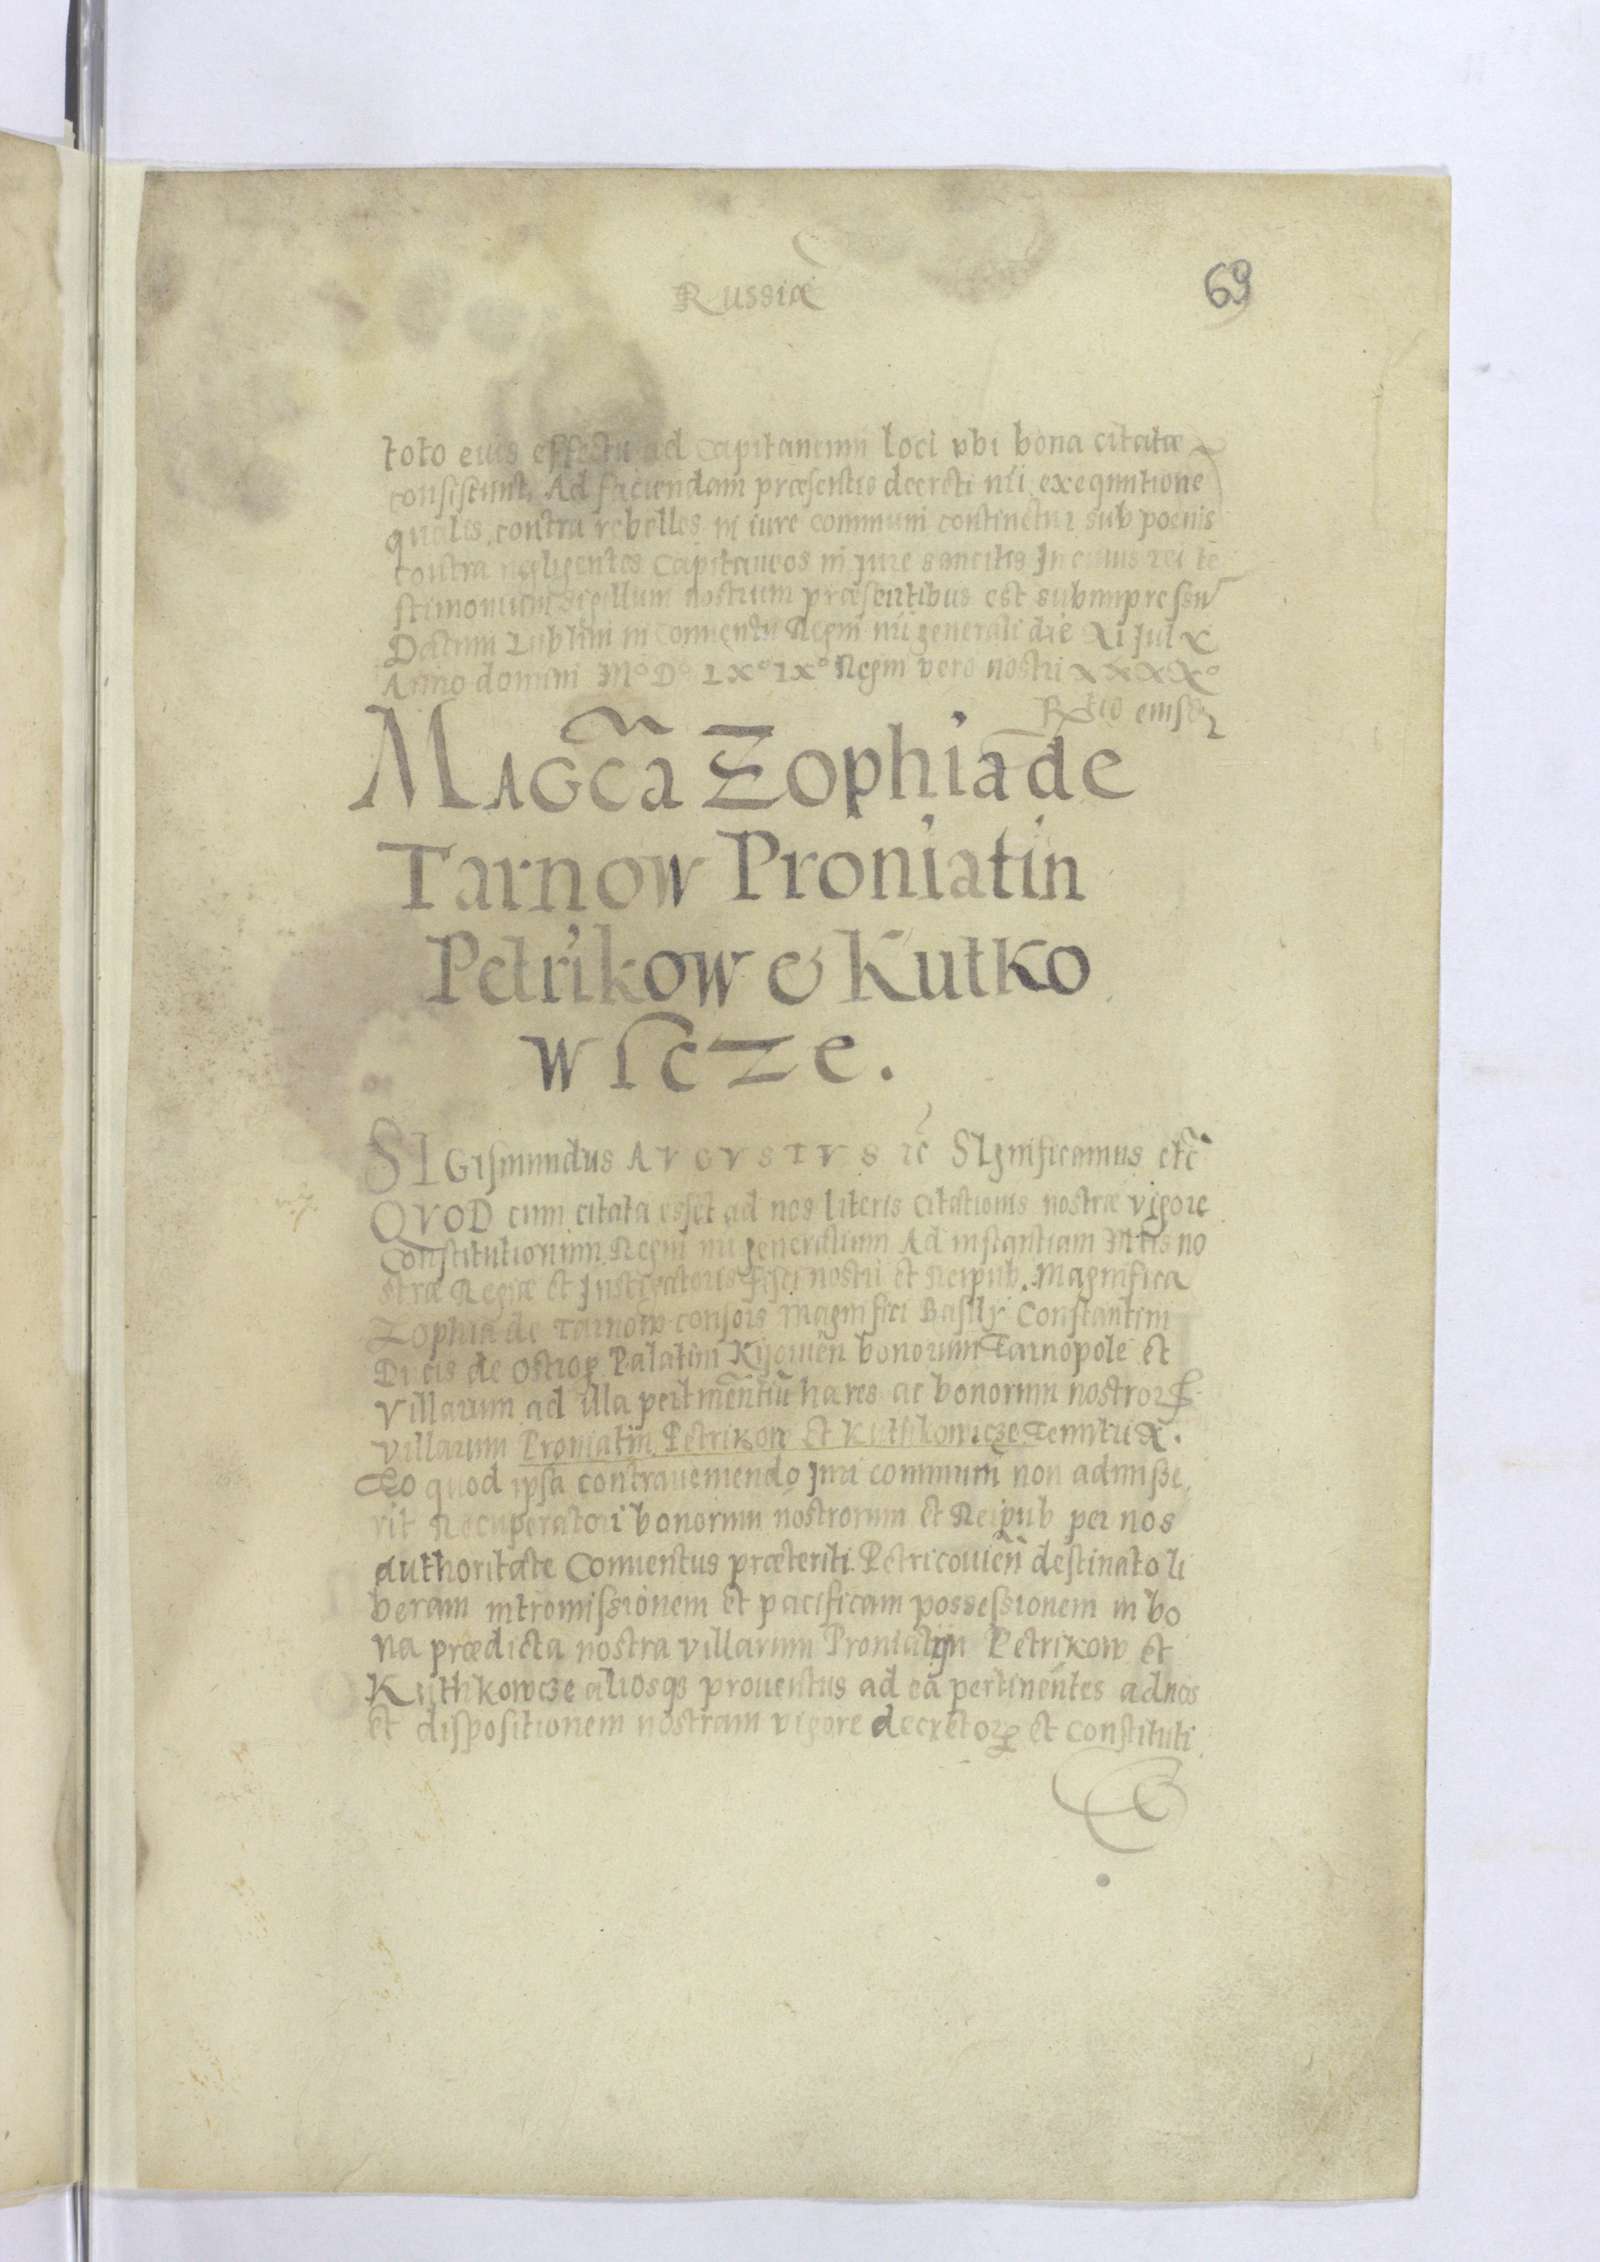 Russiæ
69
toto eius effectu ad Capitaneum loci vbi bona citatæ
consistunt, Ad faciendam præsentis decreti nri exequutione
qualis contra rebelles in iure communi continetur sub poenis
contra negligentes Capitaneos in iure sancitis In cuius rei te
stimonium sigillum nostrum præsentibus est subimpressu
Datum Lublini in Conuentu Regni nri generali die XI Julÿ
Anno domini M° D° LX° IX° Regni vero nostri XXXX°
Magca Zophia de
Tarnow Proniatin
Petrikow & Kutko
wicze.
SIGismundus AVGVSTVS ic Significamus etc
QVOD cum citata esset ad nos literis Citationis nostræ vigore
Constitutionum Regni nri generalium Ad instantiam Mtis no
stræ Regiæ et Instigatoris fisci nostri et Reipub. Magnifica
Zophia de Tarnow consors Magnifici Basilÿ Constantini
Ducis de Ostrog Palatini Kijouien bonorum Tarnopole et
Villarum ad illa pertinentiu hæres ac bonorum nostrorꝝ
villarum Proniatin Petrikow Et Kuthkowicze Tenutrix.
Eo quod ipsa contraueniendo Juri communi non admise
rit Recuperatori bonorum nostrorum et Reipub per nos
authoritate Conuentus præteriti Petricouien destinato li
beram intromissionem et pacificam possessionem in bo
na prædicta nostra villarum Proniatijn Petrikow et
Kuthkowcze aliosqs prouentus ad ea pertinentes ad nos
et dispositionem nostram vigore decretorꝝ et Constituti